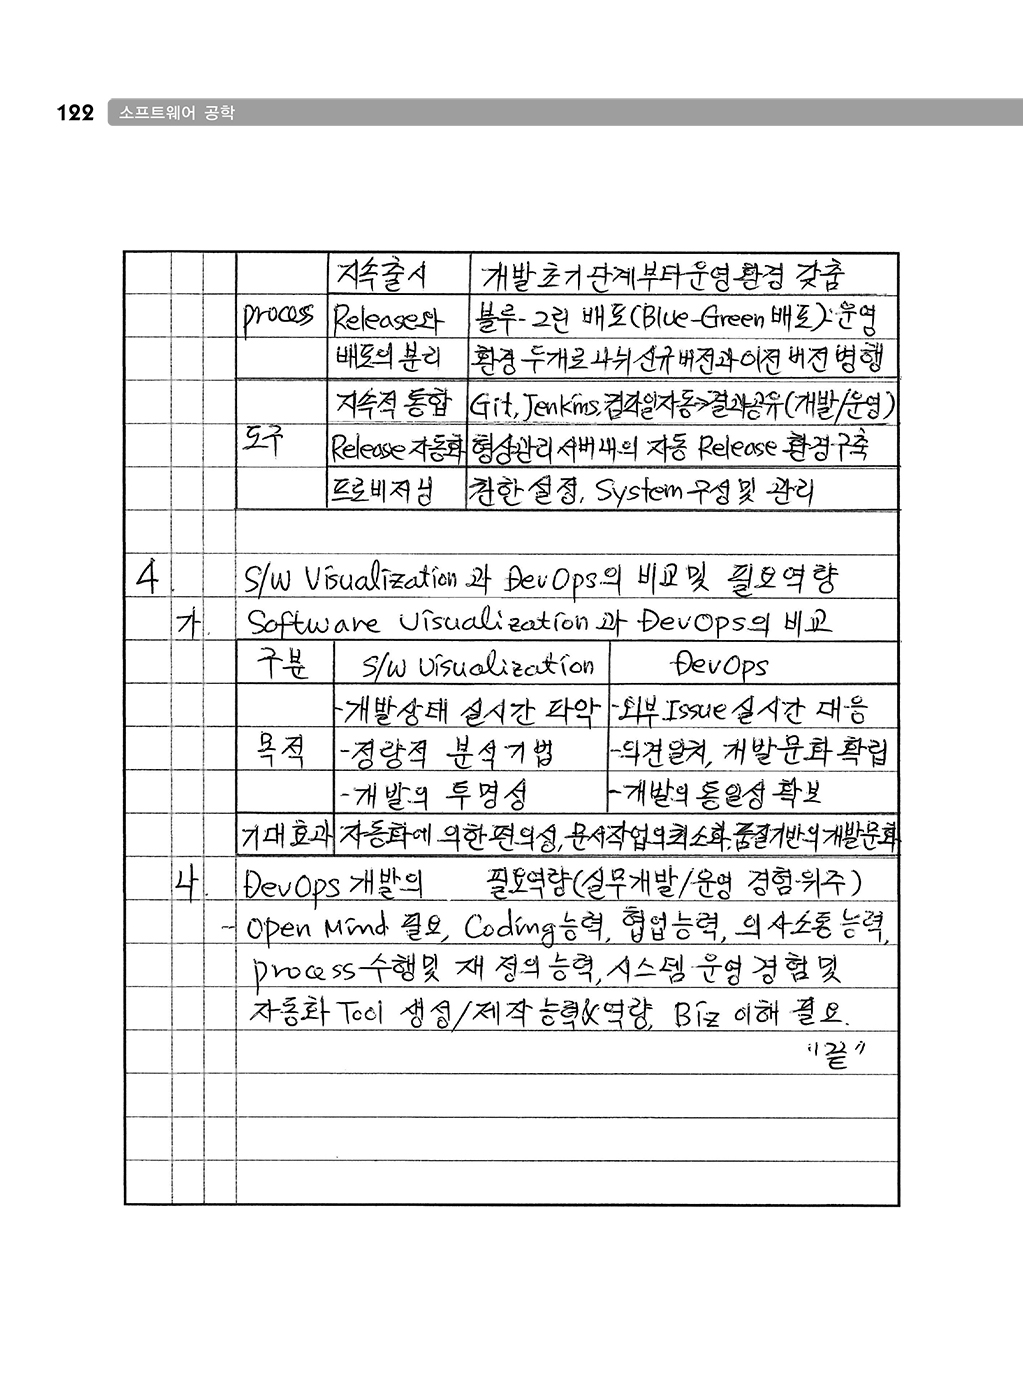 122 소프트웨어 공학
지속출시 개발초기단계부터운영환경 갖춤
process Release와 블루-그린 배포(Blue-Green 배포):운영
배포의 분리 환경 두개로 나눠 신규버전과 이전 버전 병행
지속적 통합 Git, Jenkins, 컴파일자동→결과공유(개발/운영)
도구 Release 자동화 형상관리 서버내의 자동 Release 환경구축
프로비저닝 전한 설정, System 구성 및 관리
4. S/W Visualization과 DevOps의 비교 및 필요역량
가. Software Visualization과 DevOps의 비교
구분 S/W Visualization DevOps
-개발상태 실시간 파악 -외부 Issue 실시간 대응
목적 -정량적 분석기법 -의견일치, 개발문화 확립
-개발의 투명성 -개발의 동일성 확보
기대효과 자동화에 의한 편의성, 문서작업의최소화, 품질기반의개발문화
나. DevOps 개발의 필요역량(실무개발/운영 경험위주)
- Open Mind 필요, Coding능력, 협업능력, 의사소통 능력,
process 수행및 재 정의 능력, 시스템 운영 경험 및
자동화 Tool 생성/제작 능력&역량, Biz 이해 필요.
"끝"